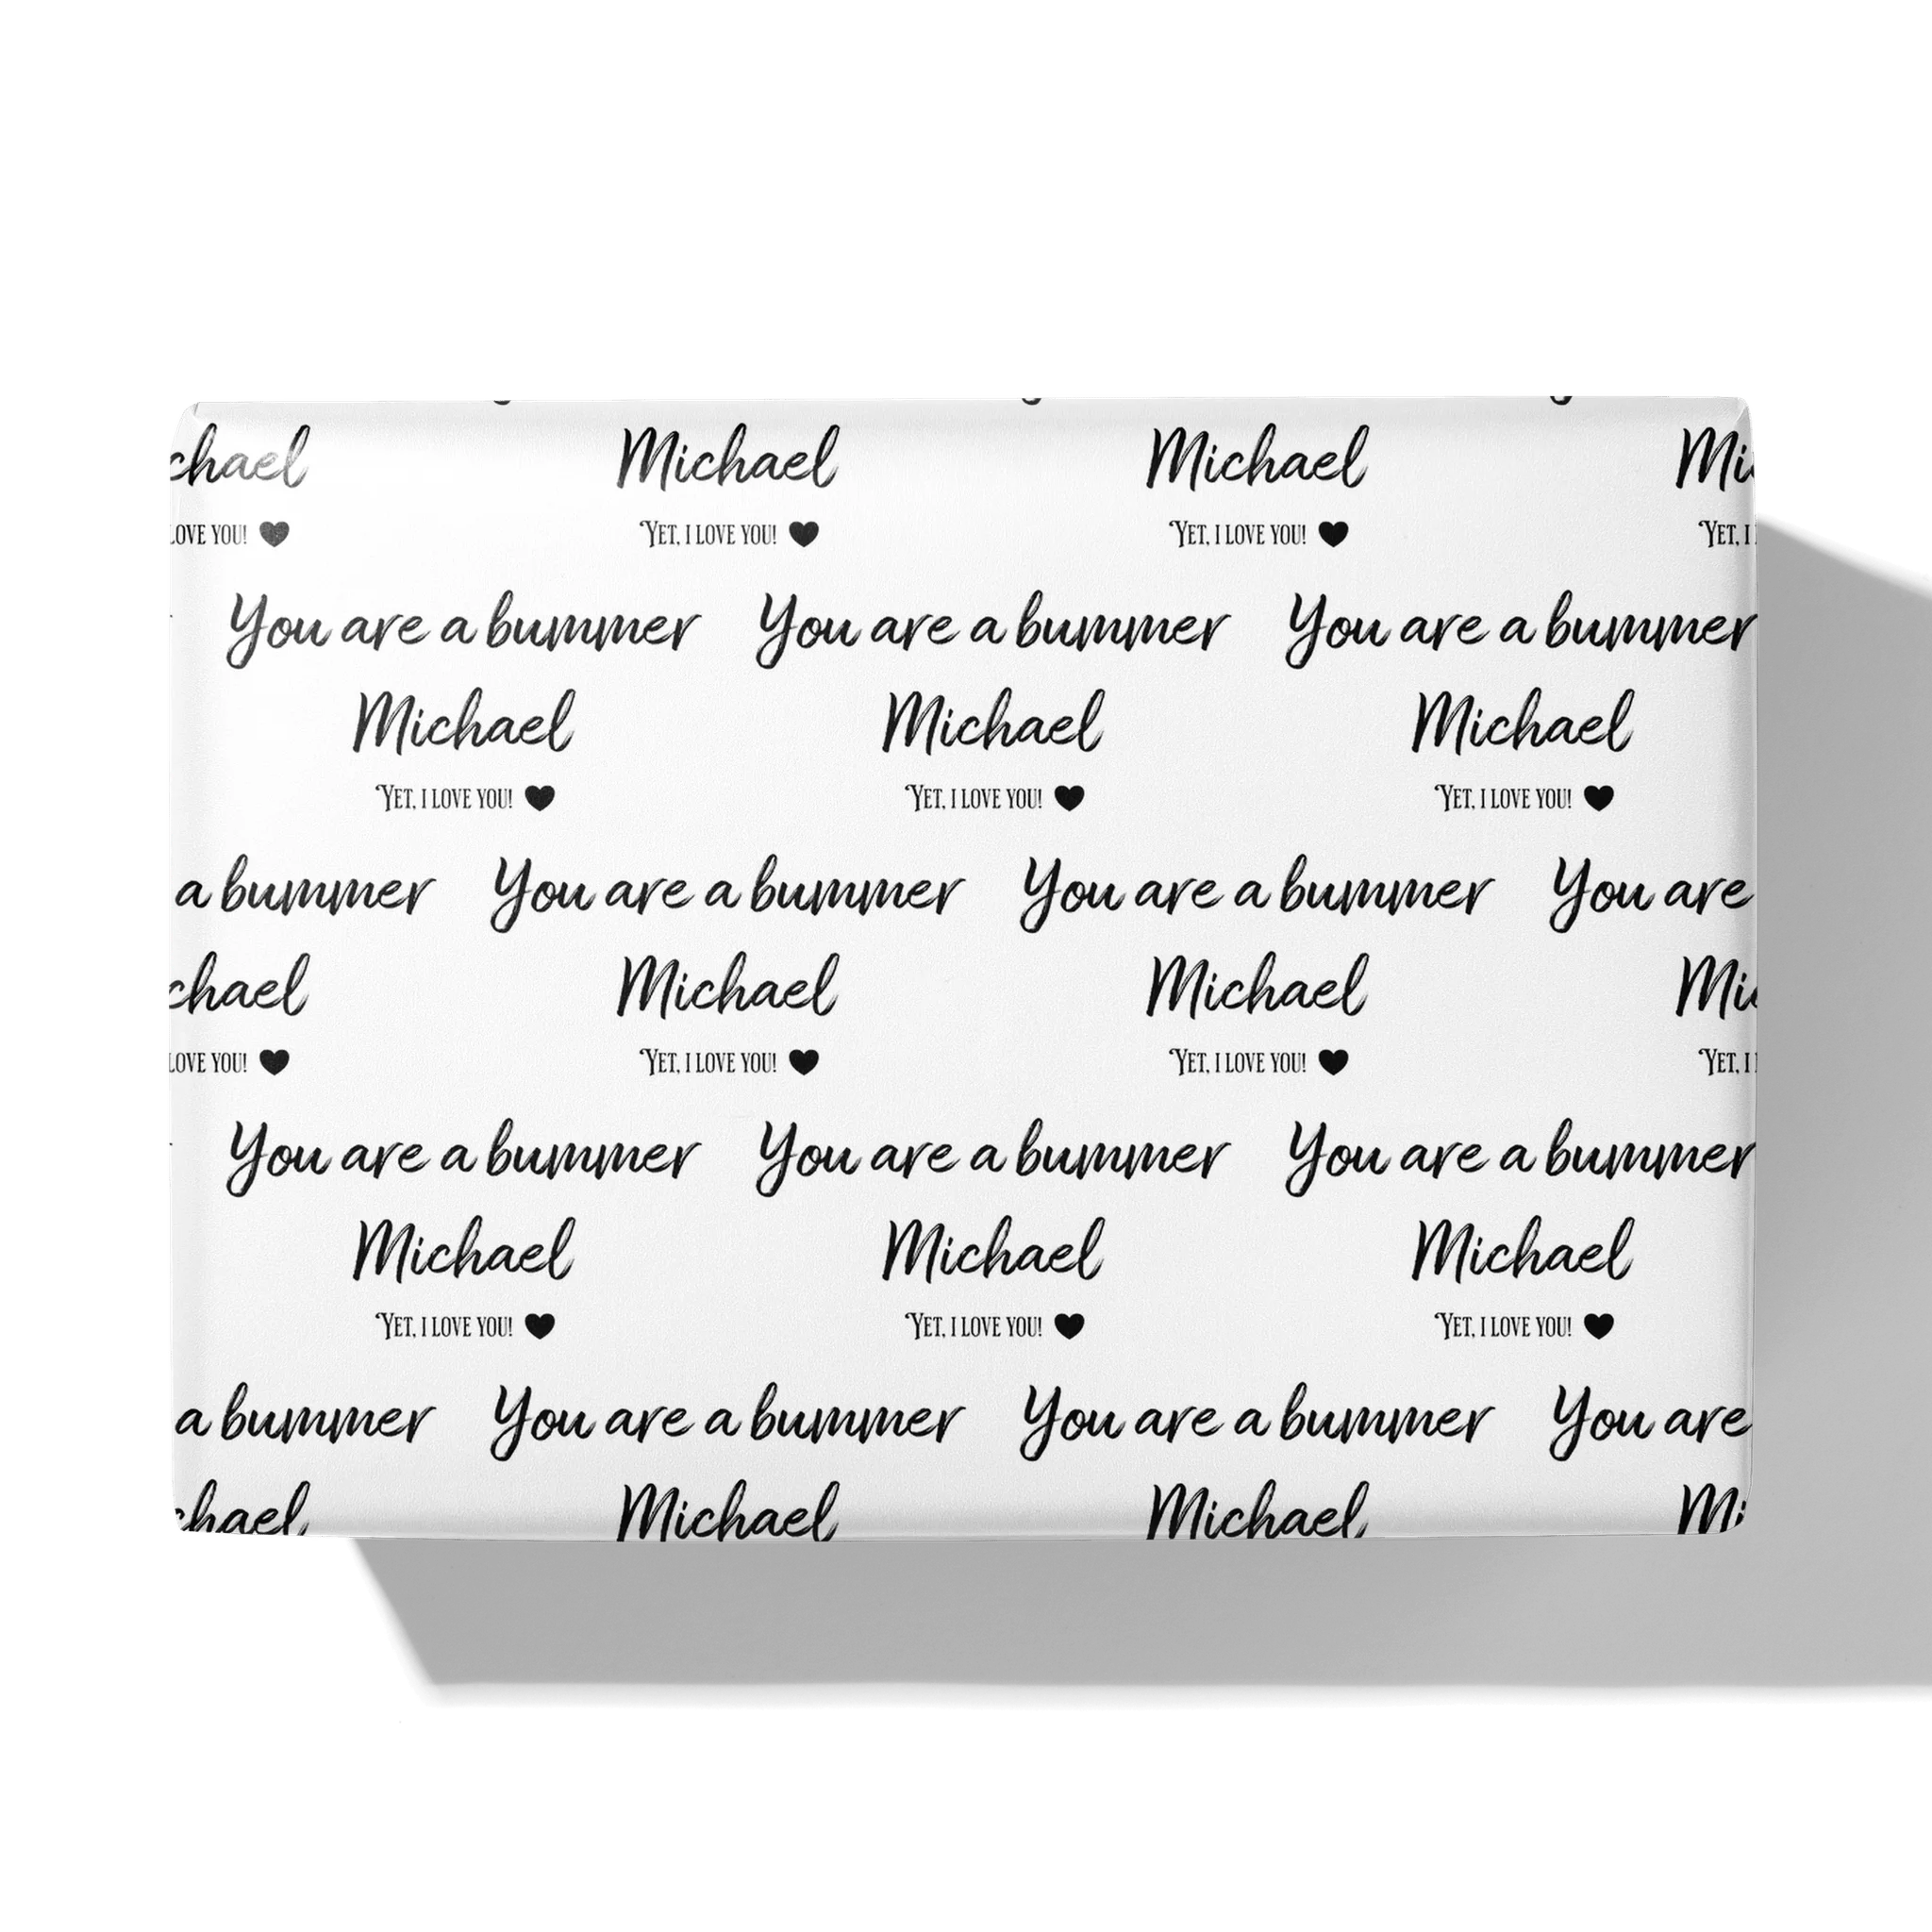 chael Michael Michael Mi
LOVE YOU! ♥ YET, I LOVE YOU! ♥ YET, I LOVE YOU! ♥ YET, I
You are a bummer You are a bummer You are a bummer
Michael Michael Michael
YET, I LOVE YOU! ♥ YET, I LOVE YOU! ♥ YET, I LOVE YOU! ♥
a bummer You are a bummer You are a bummer You are
chael Michael Michael Mi
LOVE YOU! ♥ YET, I LOVE YOU! ♥ YET, I LOVE YOU! ♥ YET, I
You are a bummer You are a bummer You are a bummer
Michael Michael Michael
YET, I LOVE YOU! ♥ YET, I LOVE YOU! ♥ YET, I LOVE YOU! ♥
a bummer You are a bummer You are a bummer You are
chael Michael Michael Mi